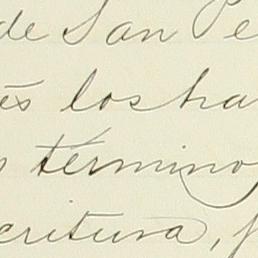 de San Pe
és los ha
términos
critura,